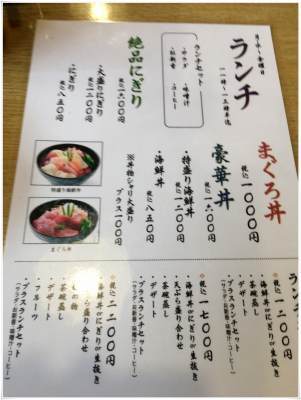 月・水〜金曜日
ランチ
一一時〜一三時半迄
ランチセット
・サラダ
・味噌汁
・牡蠣煮
・コーヒー
まぐろ丼
税込 一〇〇〇円
豪華丼
税込 一六〇〇円
・特盛り海鮮丼
税込 一二〇〇円
・海鮮丼
税込 八五〇円
※丼物シャリ大盛り
プラス一〇〇円
絶品にぎり
税込 一六〇〇円
・大盛りにぎり
税込 一二〇〇円
・にぎり
税込 八五〇円
特盛り海鮮丼
まぐろ丼
ラン
税込 一二〇〇円
・海鮮丼or生抜き
・茶碗蒸し
・デザート
・プラスランチセット
(サラダ・お新香・味噌汁・コーヒー)
税込 一七〇〇円
・海鮮丼or生抜き
・天ぷら盛り合わせ
・茶碗蒸し
・デザート
・プラスランチセット
(サラダ・お新香・味噌汁・コーヒー)
税込 二二〇〇円
・海鮮丼or生抜き
・天ぷら盛り合わせ
・茶碗蒸し
・デザート
・フルーツ
・プラスランチセット
(サラダ・お新香・味噌汁・コーヒー)